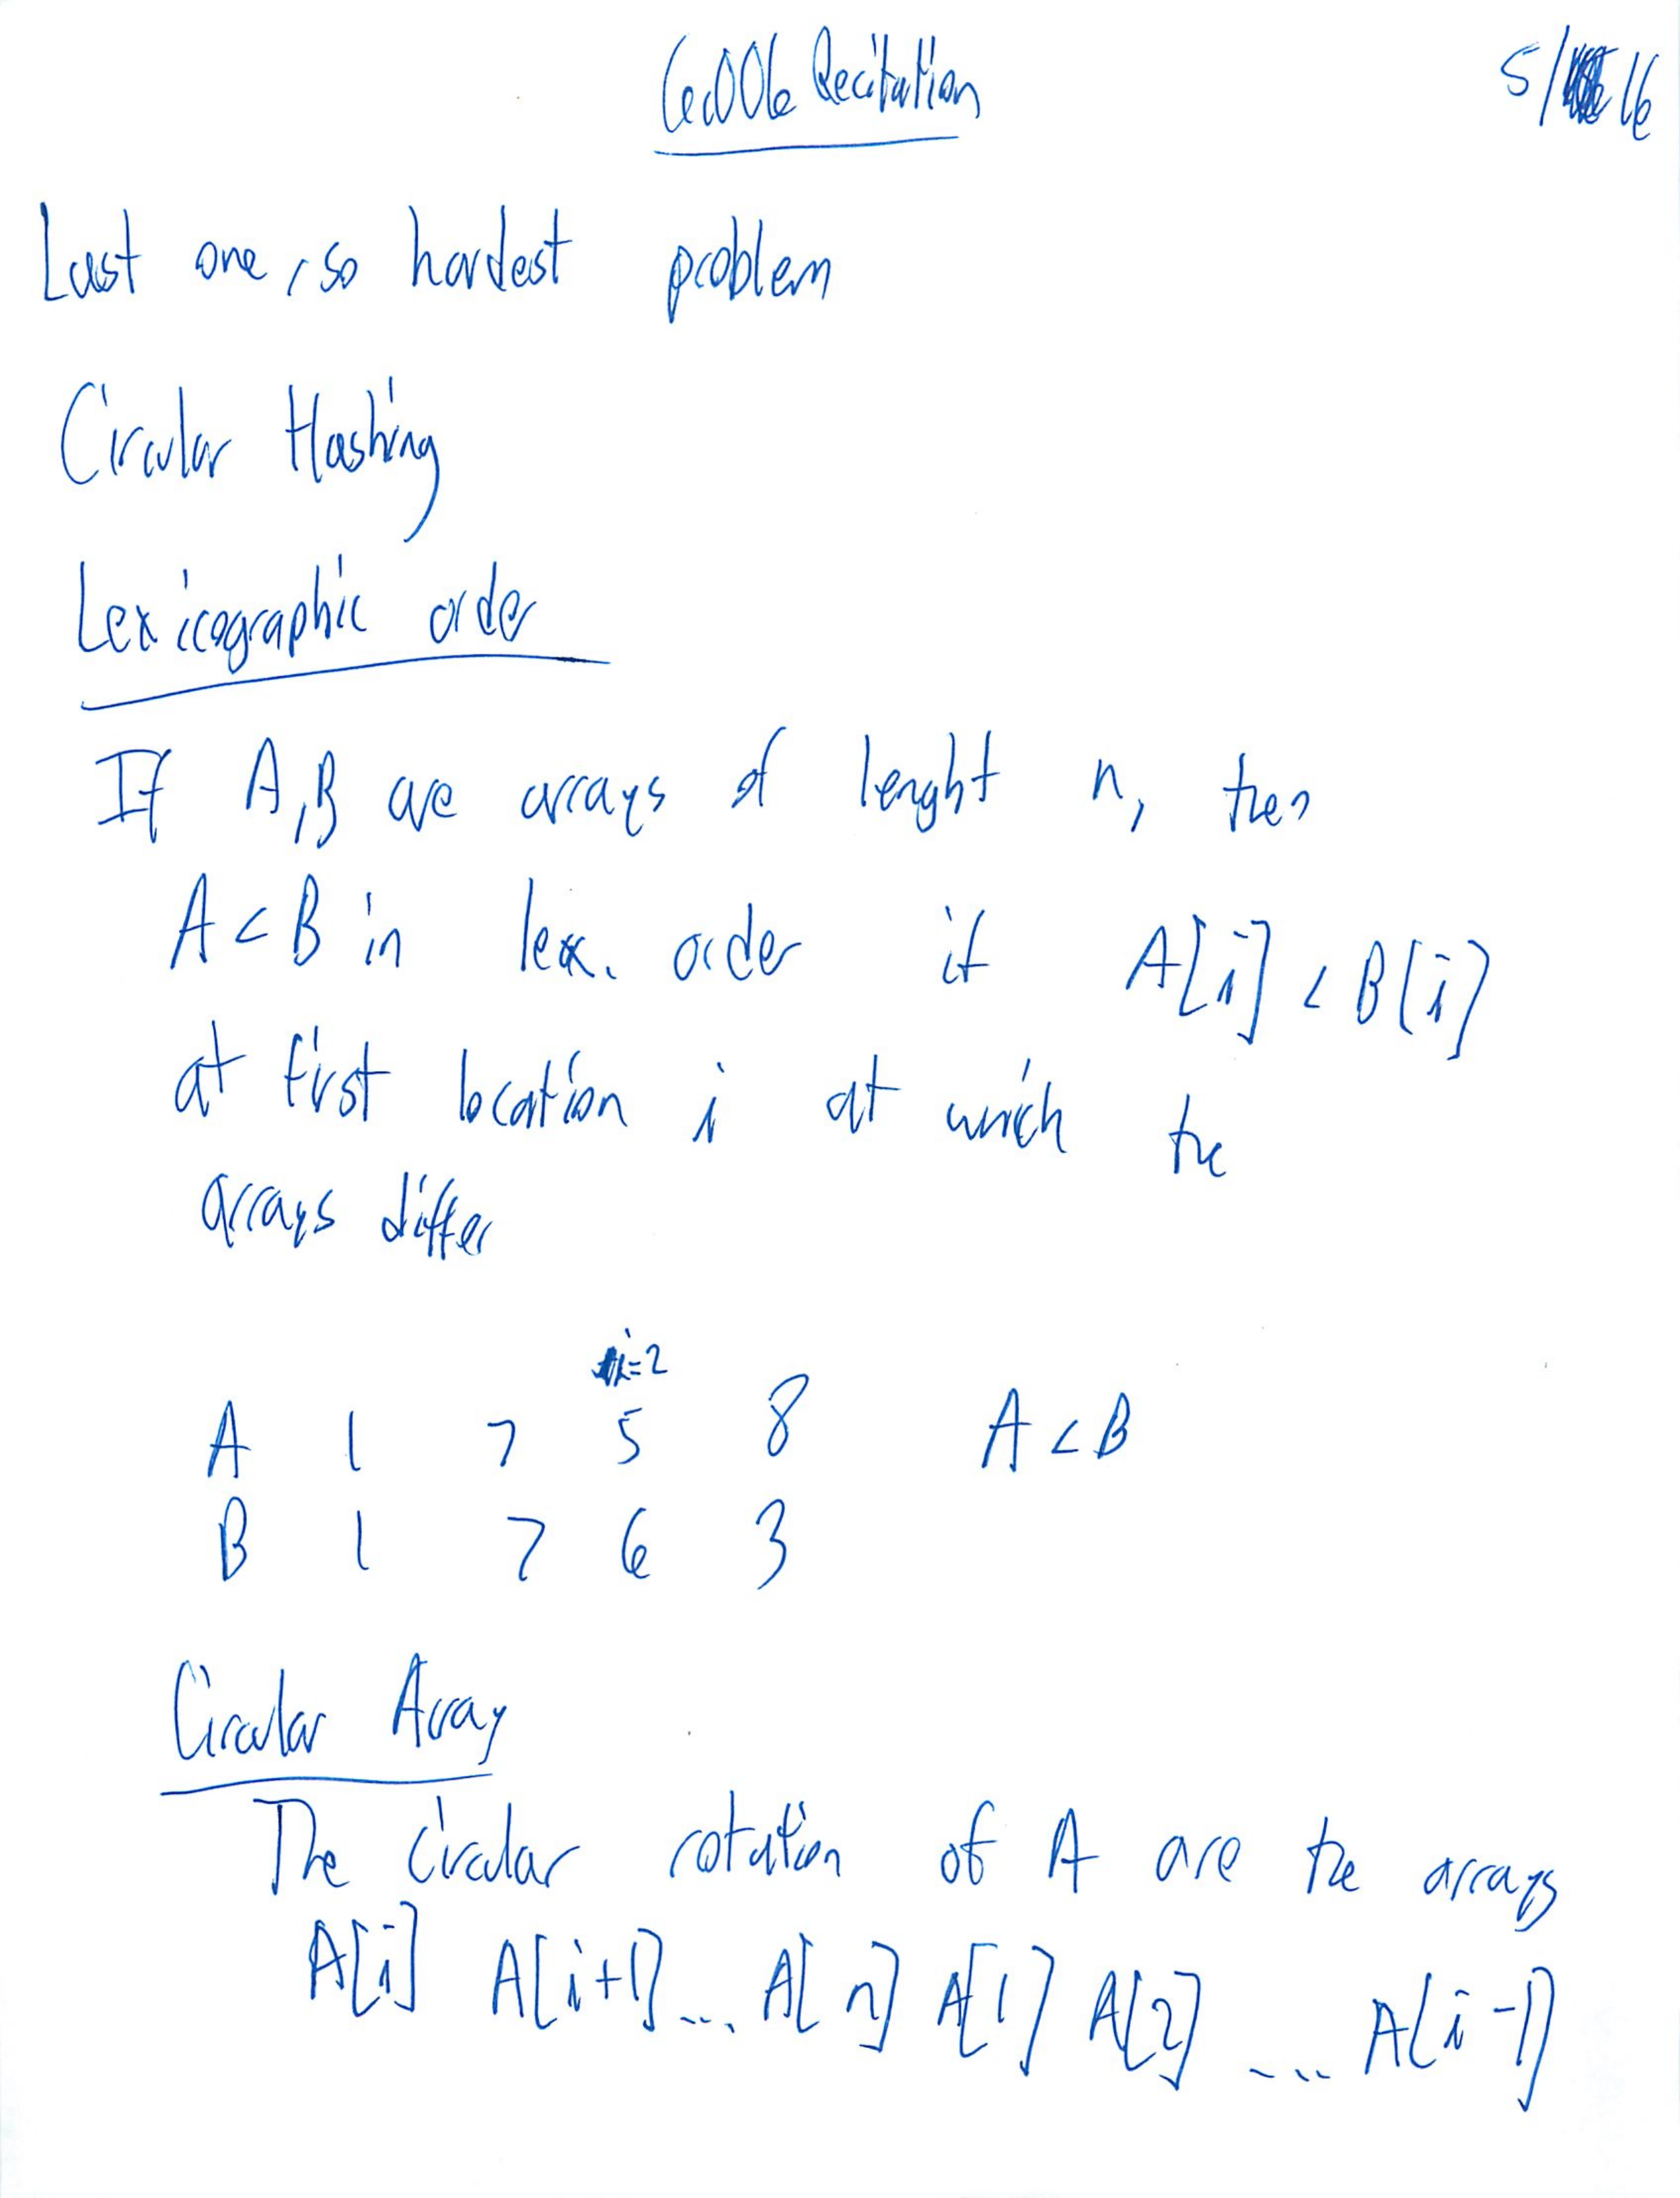 6.006 Recitation
5/16
Last one, so hardest problem
Circular Hashing
Lexicographic order
If A,B are arrays of lenght n, then
A < B in lex. order if A[i] < B[i]
at first location i at which the
arrays differ
i=2
A 1 7 5 8 A < B
B 1 7 6 3
Circular Array
The circular rotation of A are the arrays
A[i] A[i+1] ... A[n] A[1] A[2] .... A[i-1]